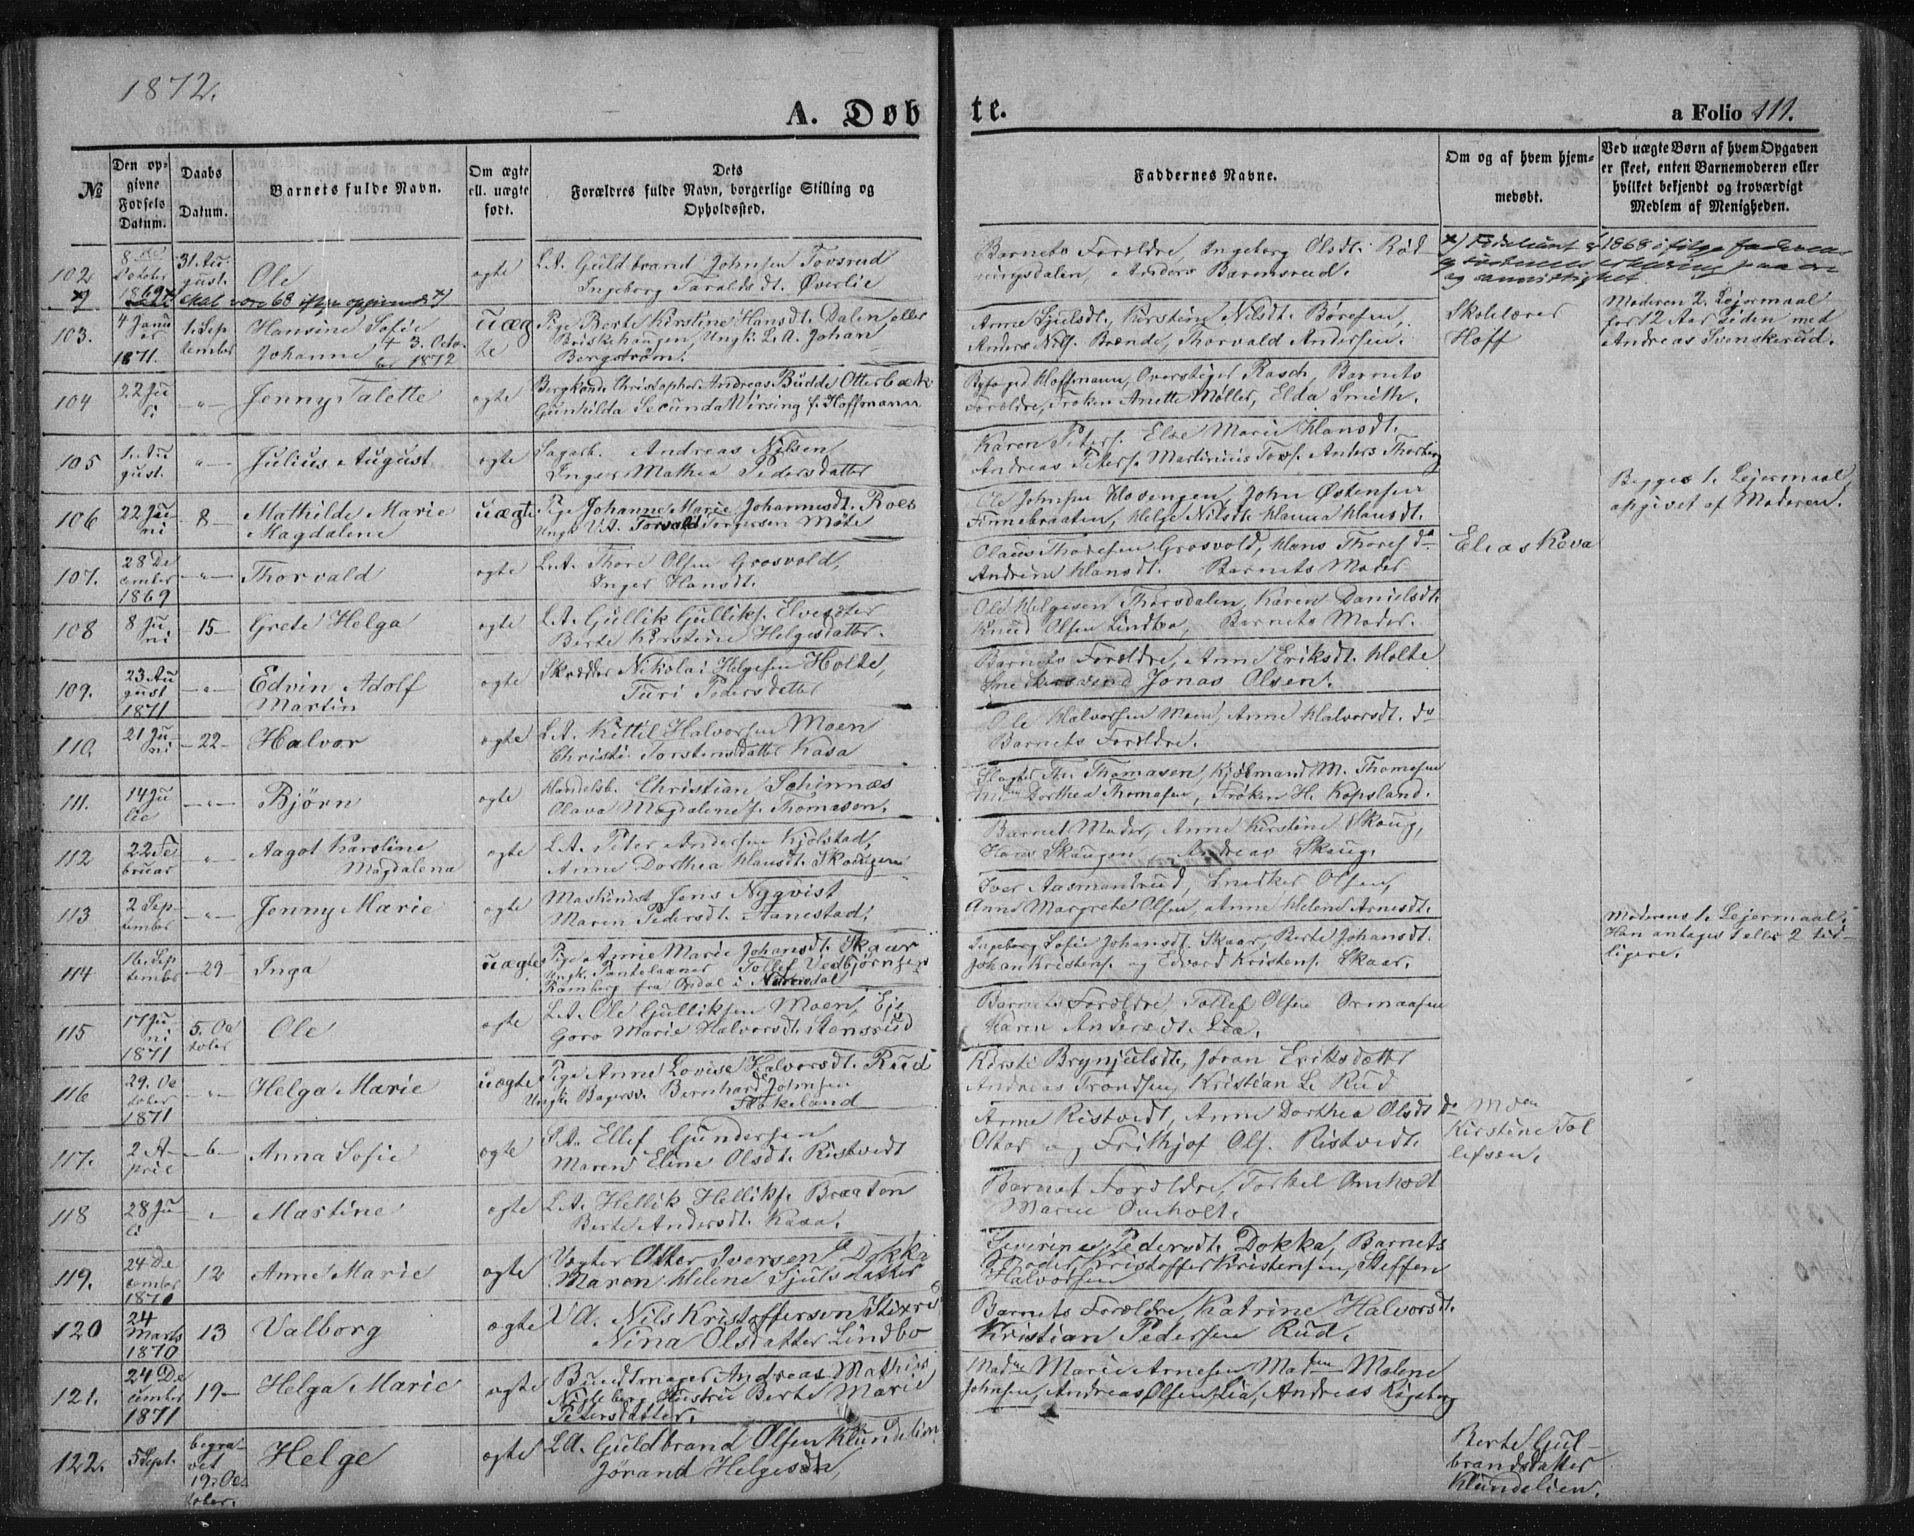 1872.
A. Døb
te.
a Folio 111.
№
Den opgivne Fødsels Datum.
Daabs Datum.
Barnets fulde Navn.
Om ægte ell. uægte født.
Dets Forældres fulde Navn, borgerlige Stilling og Opholdssted.
Faddernes Navne.
Om og af hvem hjemmedøbt.
Ved uægte Børn af hvem Opgaven er skeet, enten Barnemoderen eller hvilket bekjendt og troværdigt Medlem af Menigheden.
102 8de October 1869 31. August. Ole ægte L.A. Guldbrand Johnsen Tovsrud
Ingeborg Taraldsdt. Øverlie
Barnets Forældre, Ingeborg Olsdt.
103. 4 Januar 1871. 1. September Hansine Sofie Johanne uægte Pige Berte Kirstine Hansdt. Dalen eller
Briskehaugen, Ungk. L.A. Johan
Bergstrøm.
Anne Sjulsdt., Kirstein Nilsdt. Børesen,
Anders Nils. Brænde, Thorvald Andersen.
Skolelærer Hoff
Moderen 2. Leiermaal
for 12 Aar siden med
Andreas Svenskerud.
104 22 Juli " Jenny Talette ægte Bergkand. Christopher Andreas Budde Otterbæk
Gunhilda Secunda Wirsing f. Hoffmann
Byfoged Hoffmann, Overstiger Rasch, Barnets
Forældre, Frøken Anette Møller, Elda Smith.
105 1. August. " Julius August ægte Sagarb. Andreas Nilsen
Inger Mathea Pedersdatter
Karen Peters. Else Marie Hansdt.
Andreas Peters. Martinius Tovs. Anders Thorberg
106 22 Juni 8 Mathilde Marie Magdalene uægte Pige Johanne Marie Johannesdt. Roes
Ole Johnsen Hovengen, John Østensen
Finnebraaten, Helge Nilsdt. Hanna Hansdt.
Begges 1. Leiermaal,
opgivet af Moderen.
107. 28 December 1869 " Thorvald ægte L.A. Thore Olsen Grosvold,
Inger Hansdt.
Olaus Thoresen Grosvold, Hans Thores. do
Andrine Hansdt. Barnets Moder
Elias Keva
108 8 Juni 15 Grete Helga ægte L.A. Gullik Gulliks. Elvesæter
Berte Kirstine Helgesdatter.
Ole Helgesen Thorsdalen, Karen Danielsdt.
Knud Olsen Lindboe, Barnets Moder.
109. 23 August 1871 " Edvin Adolf Martin ægte Skrædder Nikolai Helgesen Holte,
Turi Pedersdatter
Barnets Forældre, Anne Eriksdt. Holte
Snedkersvend Jonas Olsen.
110. 21 Juni 22 Halvor ægte L.A. Kittil Halvorsen Moen
Christi Torstensdatter Kasa
Ole Halvorsen Moen, Anne Halvorsdt. do
Barnets Forældre.
111. 14 Julie " Bjørn ægte Handelsb. Christian Schinnæs
Olava Magdalene f. Thomasen.
Slagter Th. Thomasen, Kjøbmand M. Thomasen
Dorthea Thomasen, Frøken H. Kopsland.
112 22 Februar " Aagot Karoline Magdalena ægte L.A. Peter Andersen Kjølstad,
Anne Dorthea Hansdt. Skougen
Barnet Moder, Anne Kirstine Skoug,
Hans Skaugen, Andreas Skaug.
113 2 September " Jenny Marie ægte Maskinist Jens Nyqvist
Maren Pedersdt. Aanestad.
Iver Aasmandrud, Snedker Olsen,
Anne Margrete Olsen, Anne Helene Arnesdt.
114 16. September 29 Inga uægte Pige Annie Marie Johansdt. Skaar
Ungk. Tollef Vedbjørnsen
Ramberg fra Opdal i Numedal
Ingeborg Sofie Johansdt. Skaar, Berte Johansdt.
Johan Kristens. og Edvard Kristens. Skaar.
Moderens 1. Leiermaal,
Han antages 1 eller 2 tidligere.
115 17 Juni 1871 5. October Ole ægte L.A. Ole Gulliksen Moen, Eje
Goro Marie Halvorsdt. Hansrud
Barnets Forældre, Tollef Olsen
Karen Andersdt. Lia.
116 29. October 1871 " Helga Marie uægte Pige Anne Lovise Halvorsdt. Rud
Ungk. Bagersv. Bernhard Johnsen
Flokeland
Kirsti Brynjulsdt., Joran Eriksdatter
Andreas Trondsen, Kristian L. Rud
117. 2 April 6 Anna Sofie ægte L.A. Ellef Gundersen
Maren Eline Olsdt. Ristvedt
Anne Ristvedt, Anne Dorthea Olsdt. do
Ottar og Frithjof Ols. Ristvedt.
Kirstine Tollefsen.
118 28 Juli " Mastine ægte L.A. Hellik Helliks. Braaten
Berte Andersdt. Kasa.
Barnet Forældre, Torkel Omholt
Marie Omholt.
119. 24 December 1870 12 Anne Marie ægte Vægter Otter Iversen Dokka
Maren Helene Sjulsdatter
Severine Pedersdt. Dokka, Barnets
Moder, Kristoffer Kristensen, Steffen
Halvorsen
120 24 Marts 1870 13 Valborg ægte Nils Kristoffersen Stixrud
Nina Olsdatter Lindbo
Barnets Forældre, Katrine Halvorsdt.
Kristian Pedersen Rud.
121. 24 December 1871 19 Helga Marie ægte Buntmager Andreas Mathias
Nygleberg, Hustru Berte Marie
Petersdatter.
Madme Marie Arnesen, Madme Malene
Johnsen, Andreas Olsen Lia, Andreas Rigsberg
122. 5 Sept. begravet 19. October. Helge ægte L.A. Guldbrand Olsen Klundelien
Jørand Helgesdt.
Berte Gulbrandsdatter
Klundelien.